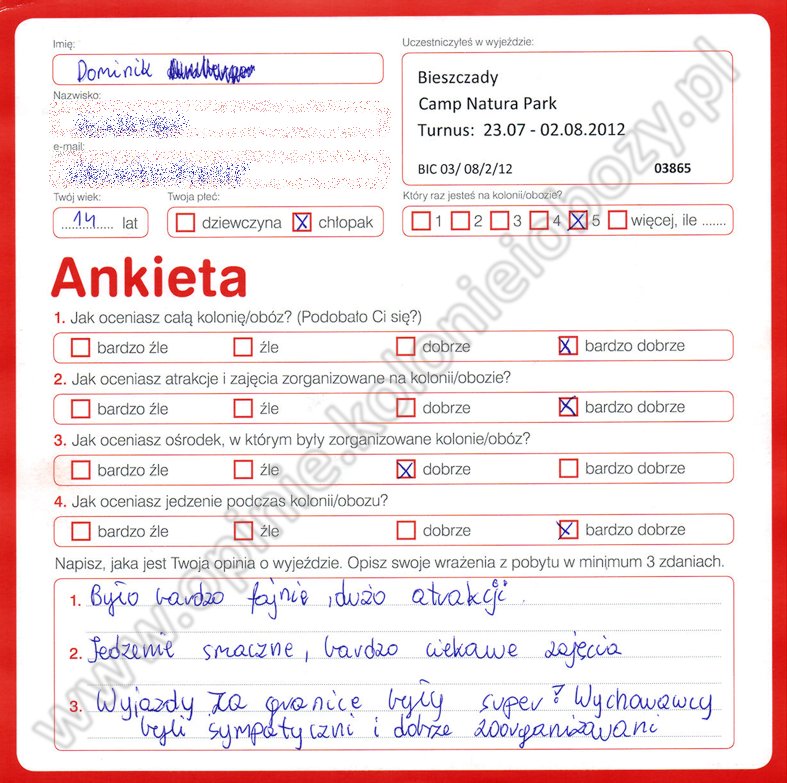 Imię:
Uczestniczyłeś w wyjeździe:
Dominik
Bieszczady
Camp Natura Park
Turnus: 23.07 - 02.08.2012
BIC 03/ 08/2/12 03865
Nazwisko:
e-mail:
Twój wiek:
Twoja płeć:
Który raz jesteś na kolonii/obozie?
14 lat
dziewczyna
X chłopak
1 2 3 4 X 5 więcej, ile .......
Ankieta
1. Jak oceniasz całą kolonię/obóz? (Podobało Ci się?)
bardzo źle źle dobrze X bardzo dobrze
2. Jak oceniasz atrakcje i zajęcia zorganizowane na kolonii/obozie?
bardzo źle źle dobrze X bardzo dobrze
3. Jak oceniasz ośrodek, w którym były zorganizowane kolonie/obóz?
bardzo źle źle X dobrze bardzo dobrze
4. Jak oceniasz jedzenie podczas kolonii/obozu?
bardzo źle źle dobrze X bardzo dobrze
Napisz, jaka jest Twoja opinia o wyjeździe. Opisz swoje wrażenia z pobytu w minimum 3 zdaniach.
1. Było bardzo fajnie, dużo atrakcji.
2. Jedzenie smaczne, bardzo ciekawe zajęcia
3. Wyjazdy za granice były super? Wychowawcy
byli sympatyczni i dobrze zoorganizowani
www.opinie.kolonieiobozy.pl